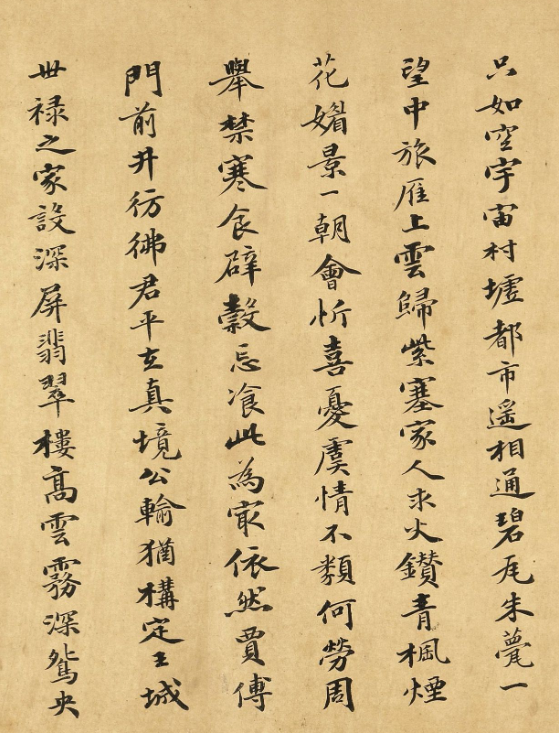 只如空宇宙村墟都市遥相通碧瓦朱甍一
望中旅雁上雲歸紫塞家人求火鑽青楓煙
花媚景一朝會忻喜憂虞情不類何勞周
舉禁寒食辟穀忘飡此為㝡依然賈傅
門前井彷彿君平玄真境公輸猶構定王城
世禄之家設深屏翡翠樓髙雲霧深鴛央